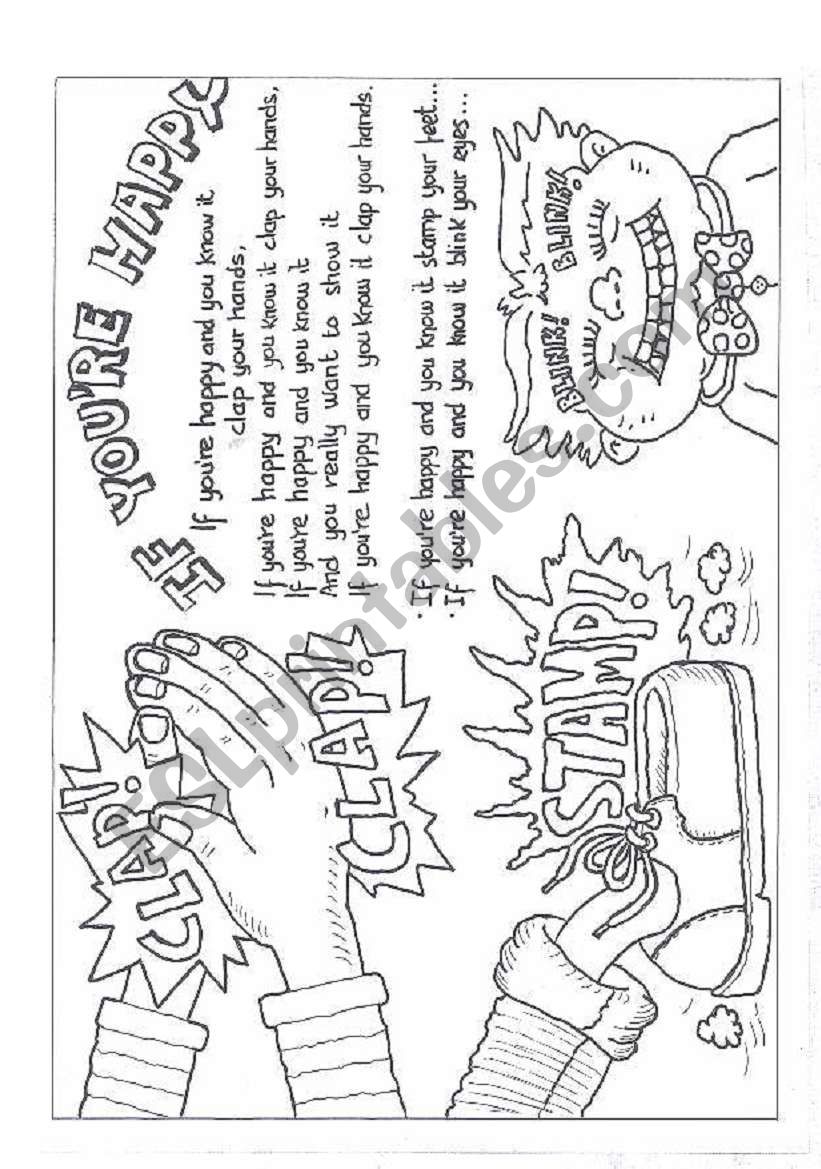 IF YOU'RE HAPPY
If you're happy and you know it
clap your hands,
If you're happy and you know it clap your hands,
If you're happy and you know it
And you really want to show it
If you're happy and you know it clap your hands.
· If you're happy and you know it stamp your feet...
· If you're happy and you know it blink your eyes...
CLAP!
CLAP!
STAMP!
BLINK! BLINK!
ESLprintables.com